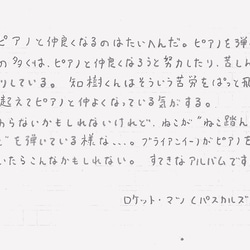 ピアノと仲良くなるのはたいへんだ。ピアノを弾
の多くは、ピアノと仲良くなろうと努力したり、苦しん
りしている。知樹くんはそういう苦労をぱっと飛
超えてピアノと仲よくなっている気がする。
わらないかもしれないけれど、ぬこが“ねこ踏ん
を弾いている様な...。ブライアンイーノがピアノを
いたらこんなかもしれない。すてきなアルバムです
ロケット・マツ（パスカルズ